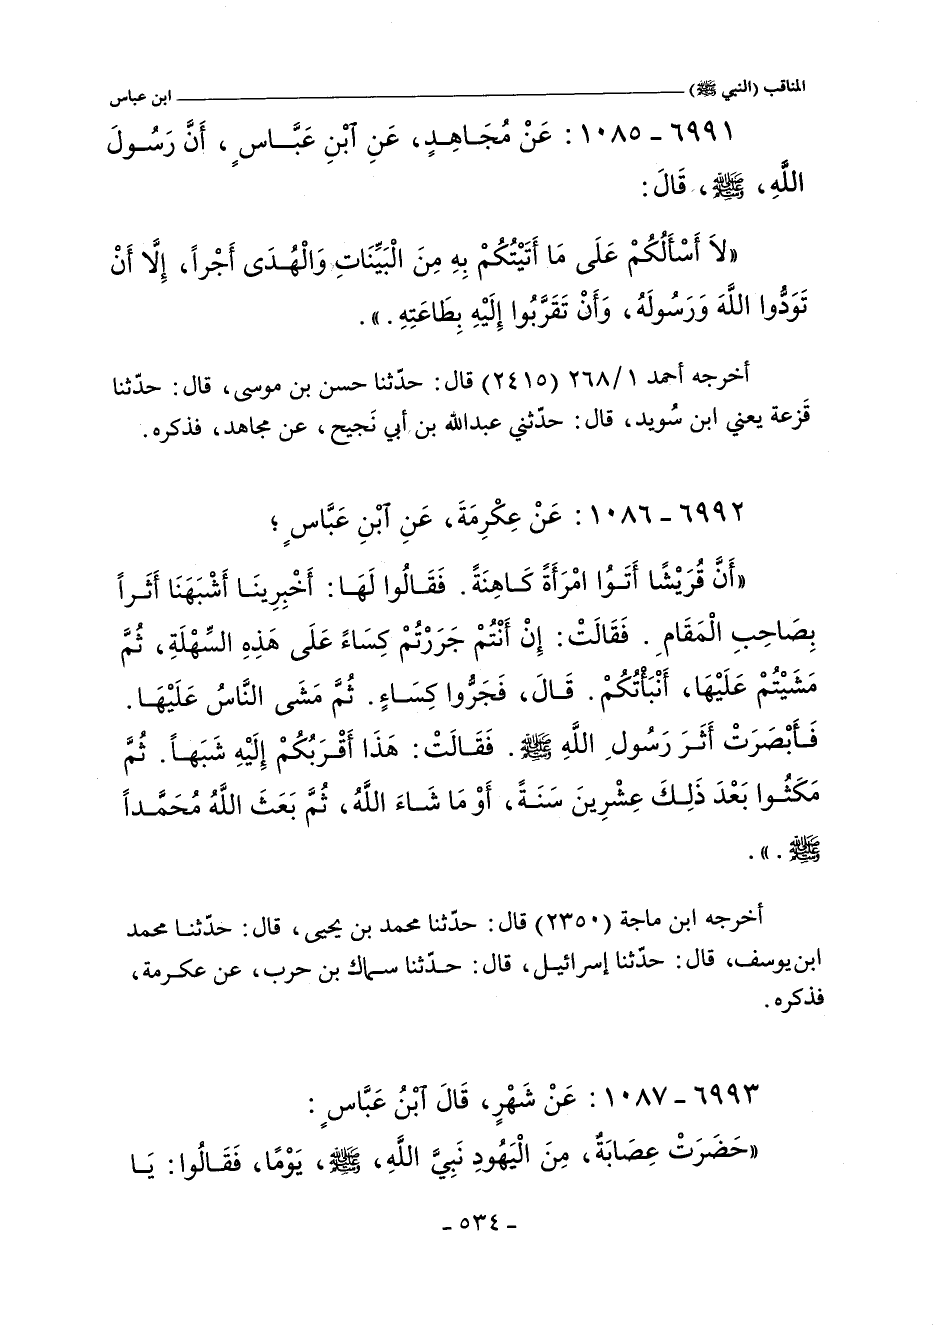 المناقب (النبي ﷺ) ابن عباس
٦٩٩١ - ١٠٨٥ : عَنْ مُجَاهِدٍ، عَنِ ٱبْنِ عَبَّاسٍ، أَنَّ رَسُولَ
اللَّهِ، ﷺ، قَالَ:
«لاَ أَسْأَلُكُمْ عَلَى مَا أَتَيْتُكُمْ بِهِ مِنَ الْبَيِّنَاتِ وَالْهُدَى أَجْراً، إِلَّا أَنْ
تَوَدُّوا اللَّهَ وَرَسُولَهُ، وَأَنْ تَقَرَّبُوا إِلَيْهِ بِطَاعَتِهِ.».
أخرجه أحمد ٢٦٨/١ (٢٤١٥) قال: حدّثنا حسن بن موسى، قال: حدّثنا
قَزعة يعني ابن سُويد، قال: حدّثني عبدالله بن أبي نَجيح، عن مجاهد، فذكره.
٦٩٩٢ - ١٠٨٦ : عَنْ عِكْرِمَةَ، عَنِ ٱبْنِ عَبَّاسٍ؛
«أَنَّ قُرَيْشًا أَتَوُا امْرَأَةً كَاهِنَةً. فَقَالُوا لَهَا: أَخْبِرِينَا أَشْبَهَنَا أَثَراً
بِصَاحِبِ الْمَقَامِ. فَقَالَتْ: إِنْ أَنْتُمْ جَرَرْتُمْ كِسَاءً عَلَى هَذِهِ السِّهْلَةِ، ثُمَّ
مَشَيْتُمْ عَلَيْهَا، أَنْبَأْتُكُمْ. قَالَ، فَجَرُّوا كِسَاءٍ. ثُمَّ مَشَى النَّاسُ عَلَيْهَا.
فَأَبْصَرَتْ أَثَرَ رَسُولِ اللَّهِ ﷺ. فَقَالَتْ: هَذَا أَقْرَبُكُمْ إِلَيْهِ شَبَهاً. ثُمَّ
مَكَثُوا بَعْدَ ذَلِكَ عِشْرِينَ سَنَةً، أَوْ مَا شَاءَ اللَّهُ، ثُمَّ بَعَثَ اللَّهُ مُحَمَّداً
ﷺ.».
أخرجه ابن ماجة (٢٣٥٠) قال: حدّثنا محمد بن يحيى، قال: حدّثنا محمد
ابن يوسف، قال: حدّثنا إسرائيل، قال: حدّثنا سماك بن حرب، عن عكرمة،
فذكره.
٦٩٩٣ - ١٠٨٧ : عَنْ شَهْرٍ، قَالَ ٱبْنُ عَبَّاسٍ:
«حَضَرَتْ عِصَابَةٌ، مِنَ الْيَهُودِ نَبِيَّ اللَّهِ، ﷺ، يَوْمًا، فَقَالُوا: يَا
- ٥٣٤ -